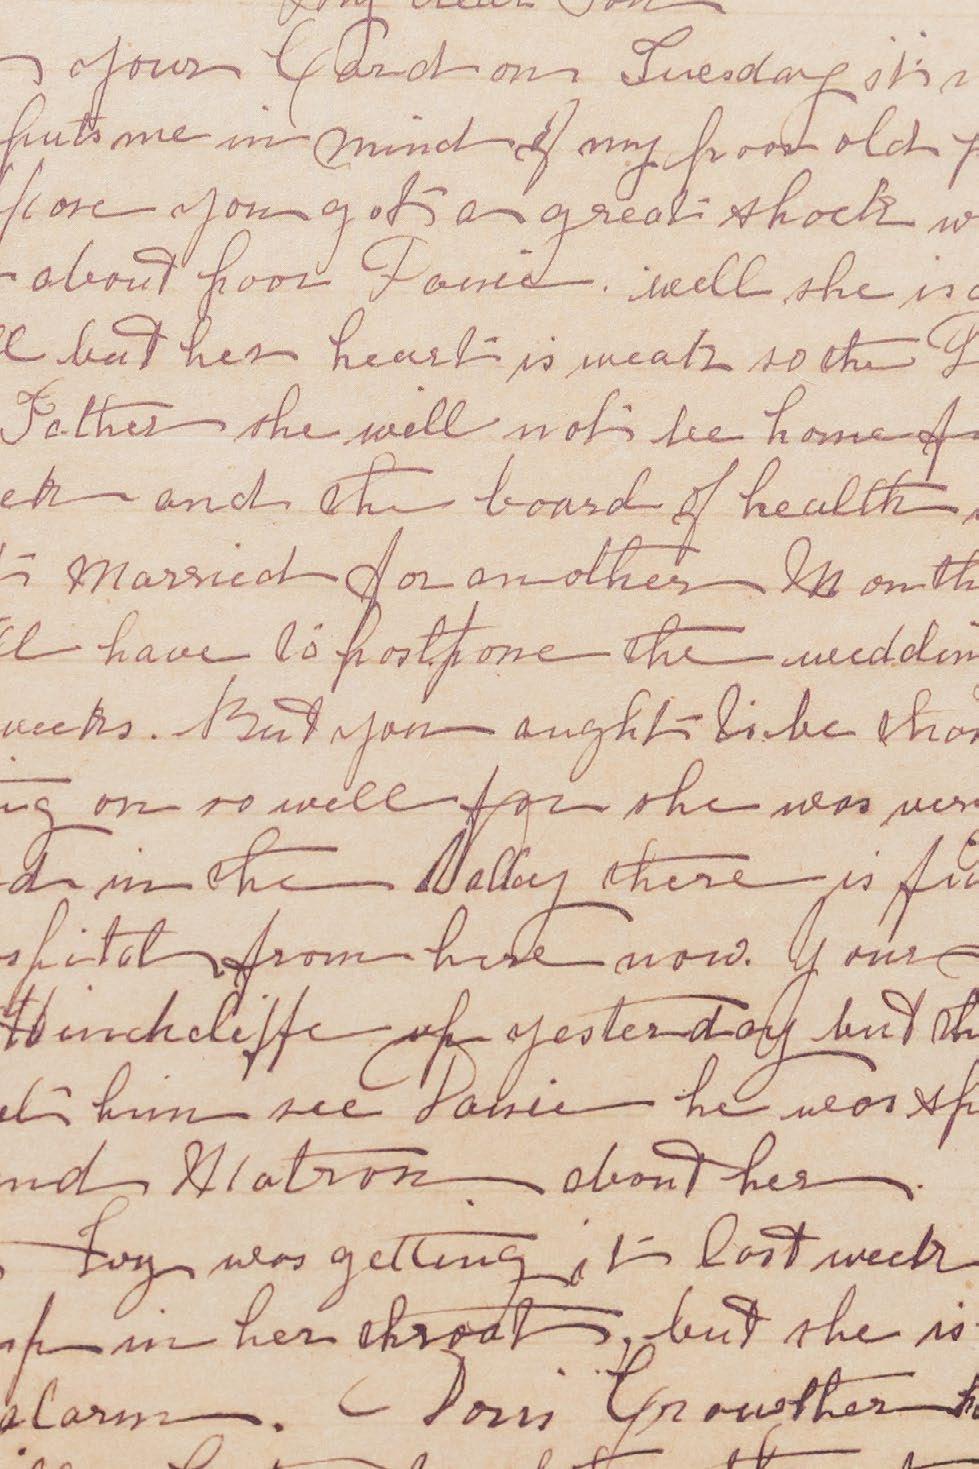 My dear Son
your Card on Tuesday it's
puts me in mind of my poor old
pose you got a great shock w
about poor Janie. well she is
ll but her heart is weak so the
Father she will not be home f
ek and the board of health
t married for another Month
ll have to postpone the weddin
weeks. But you aught to be than
ing on so well for she was very
d in the Valley there is fi
spital from here now. Your
Hinchcliffe up yesterday but th
et him see Janie he was sp
nd Matron about her.
Ivy was getting it last week
up in her throat, but she is
alarm. Doris Crowther